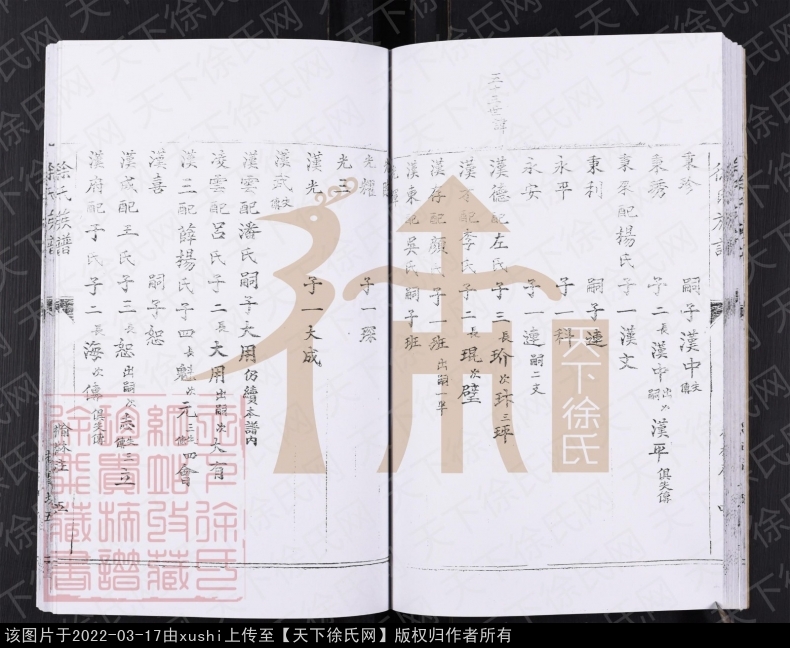 三十三世
秉珍 嗣子漢中失傳
秉秀 子二長漢中出嗣次漢平俱失傳
秉采配楊氏子一漢文
秉利 嗣子連
永平 子一科
永安 子一連嗣二文
漢德配左氏子三長玠次玤三玶
漢才配李氏子二長琨次璧
漢存配顏氏子一班出嗣
漢東配吳氏嗣子班
光耀 子一琛
光三
漢光 子一大成
漢武失傳
漢雲配潘氏嗣子大用仍續本譜內
凌雲配呂氏子二長大用出嗣次大有
漢三配薛楊氏子四長魁次元三 四會
漢喜 嗣子恕
漢成配王氏子三長恕出嗣次 三立
漢府配于氏子二長海次傳俱失傳
徐氏族譜
天下徐氏
天下徐氏网
该图片于2022-03-17由xushi上传至【天下徐氏网】版权归作者所有